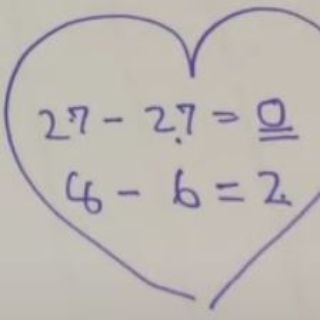 27 - 27 = 0
8 - 6 = 2